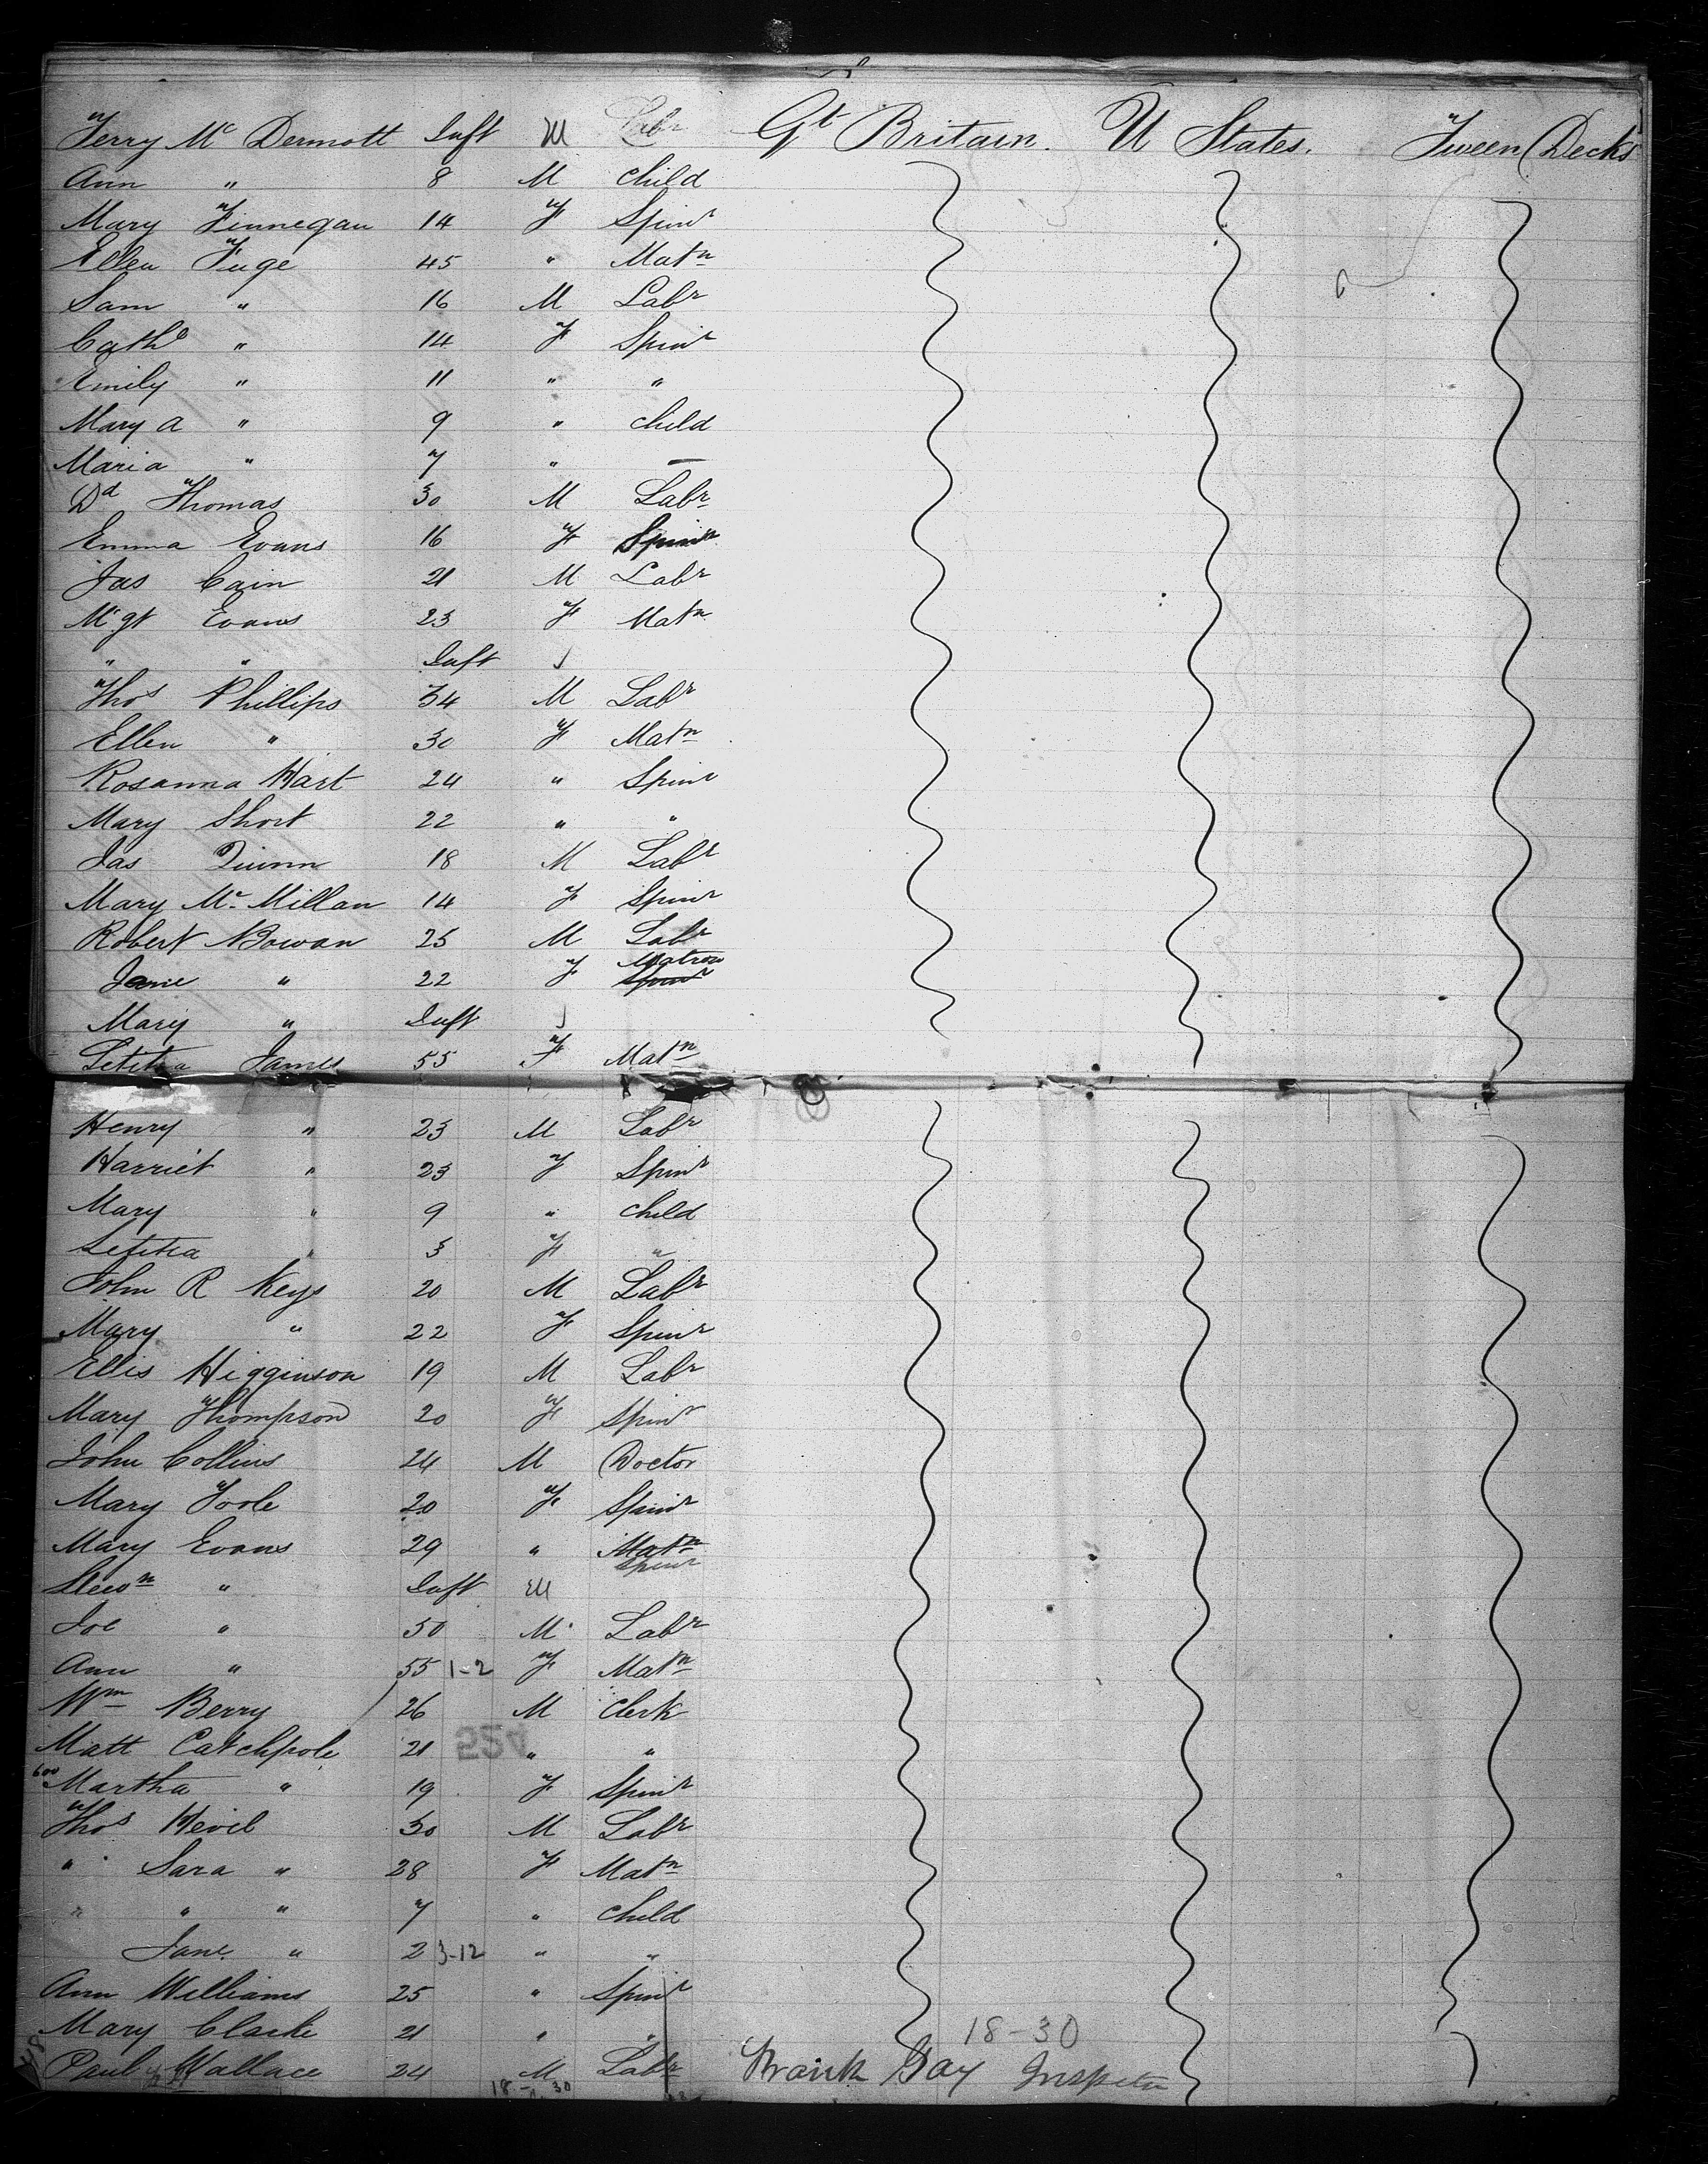 Terry Mc Dermott Inft M Labr Gt Britain. U States. Tween Decks
Ann " 8 M child
Mary Finnegan 14 F Spinr
Ellen Fuge 45 " Matn
Sam " 16 M Labr
Cathe " 14 F Spinr
Emily " 11 " "
Mary A " 9 " child
Maria " 7 " —
Dd Thomas 30 M Labr
Emma Evans 16 F Spinr
Jas Cain 21 M Labr
Mgt Evans 23 F Matn
" " Inft
Thos Phillips 34 M Labr
Ellen " 30 F Matn
Rosanna Hart 24 " Spinr
Mary Short 22 " "
Jas Quinn 18 M Labr
Mary Mc Millan 14 F Spinr
Robert Bowan 25 M Labr
Jane " 22 F Matron Spinr
Mary " Inft
Letitia James 55 F Matn
Henry " 23 M Labr
Harriet " 23 F Spinr
Mary " 9 " child
Letitia " 3 F "
John R Keys 20 M Labr
Mary " 22 F Spinr
Ellis Higginson 19 M Labr
Mary Thompson 20 F Spinr
John Collins 24 M Doctor
Mary Toole 20 F Spinr
Mary Evans 29 " Matn Spinr
Llewn " Inft M
Joe " 50 M Labr
Ann " 55 1-2 F Matn
Wm Berry 26 M Clerk
Matt Catchpole 21 " "
600 Martha " 19 F Spinr
Thos Hevil 30 M Labr
" Sara " 28 F Matn
" " " 7 " child
Jane " 2 3-12 " "
Ann Williams 25 " Spinr
Mary Clarke 21 " " 18-30
Paul Wallace 24 M Labr Frank Gay Inspector
18-30